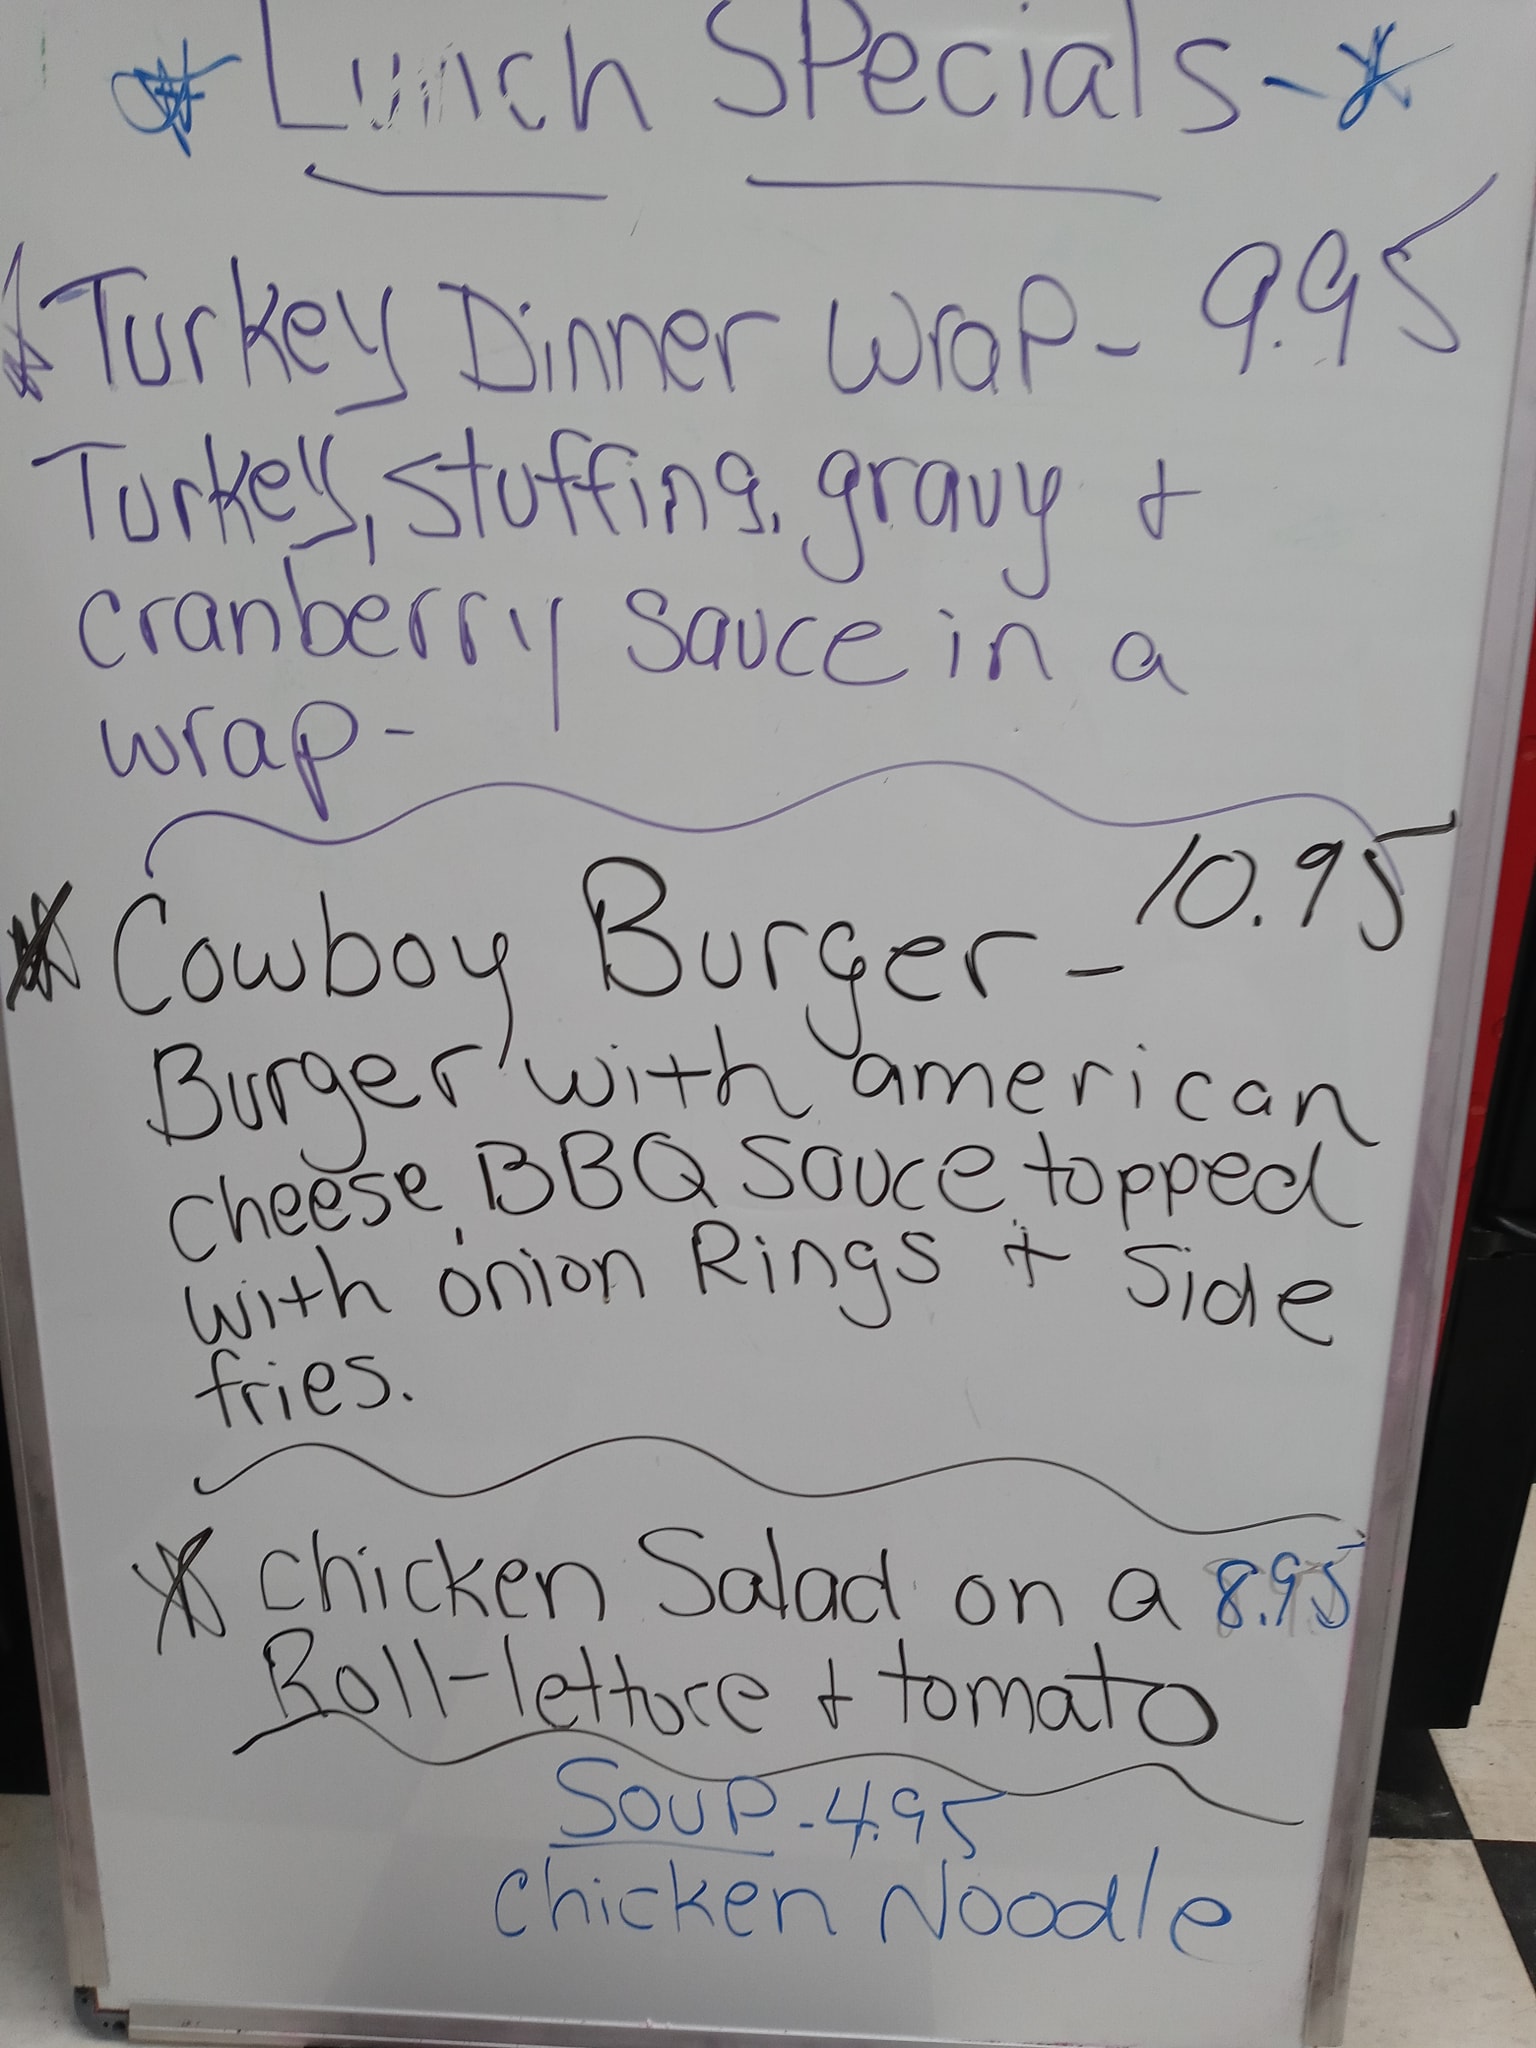 Lunch Specials-
Turkey Dinner Wrap- 9.95
Turkey, stuffing, gravy +
cranberry sauce in a
wrap-
Cowboy Burger - 10.95
Burger with american
cheese, BBQ sauce, topped
with onion Rings + side
fries.
Chicken Salad on a 8.95
Roll-lettuce + tomato
Soup - 4.95
Chicken Noodle